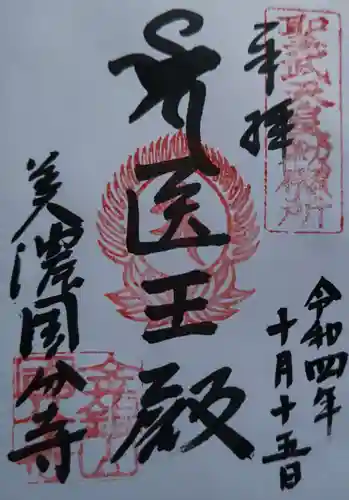 聖武天皇勅願所
奉拝
令和四年
十月十五日
医王殿
美濃国分寺